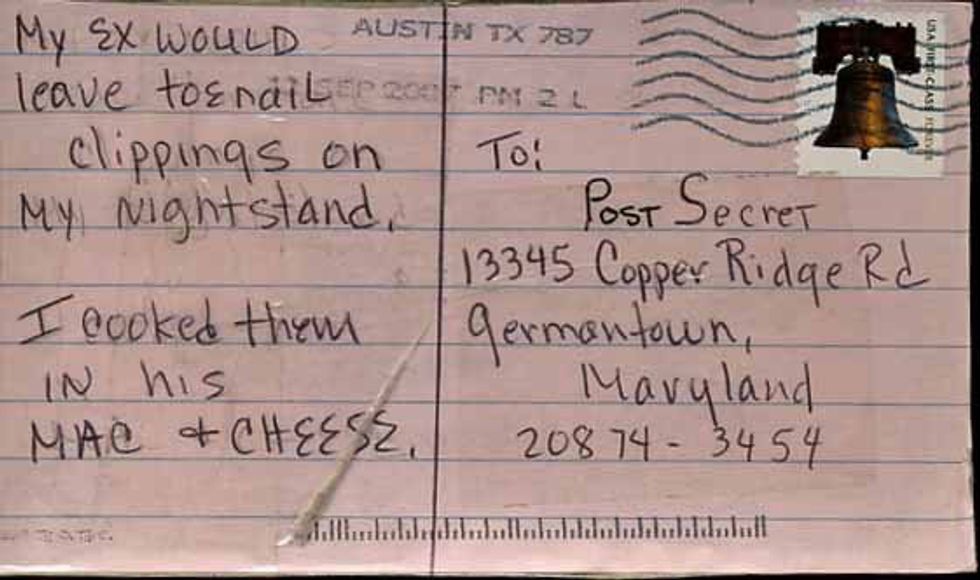 My EX WOULD
leave toenail
clippings on
My Nightstand.
I cooked them
IN his
MAC & CHEESE.
AUSTIN TX 787
SEP 2007 PM 2 L
To:
Post Secret
13345 Copper Ridge Rd
Germantown,
Maryland
20874-3454
USA FIRST-CLASS FOREVER